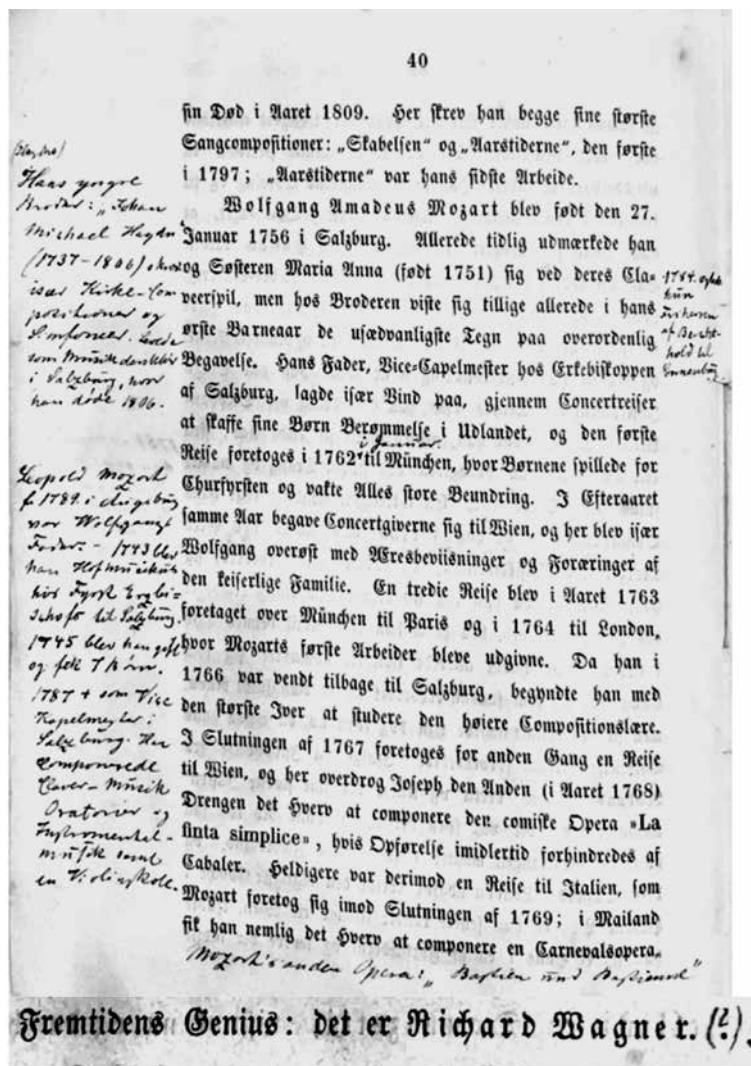 40
sin Død i Aaret 1809. Her skrev han begge sine største
Sangcompositioner: „Skabelsen“ og „Aarstiderne“, den første
i 1797; „Aarstiderne“ var hans sidste Arbeide.
Wolfgang Amadeus Mozart blev født den 27.
Januar 1756 i Salzburg. Allerede tidlig udmærkede han
og Søsteren Maria Anna (født 1751) sig ved deres Cla-
veerspil, men hos Broderen viste sig tillige allerede i hans
ørste Barneaar de usædvanligste Tegn paa overordenlig
Begavelse. Hans Fader, Vice-Capelmester hos Erkebiskoppen
af Salzburg, lagde især Vind paa, gjennem Concertreiser
at skaffe sine Børn Berømmelse i Udlandet, og den første
i Januar
Reise foretoges i 1762 til München, hvor Børnene spillede for
Churfyrsten og vakte Alles store Beundring. I Efteraaret
samme Aar begave Concertgiverne sig til Wien, og her blev især
Wolfgang overøst med Æresbeviisninger og Foræringer af
den keiserlige Familie. En tredie Reise blev i Aaret 1763
foretaget over München til Paris og i 1764 til London,
hvor Mozarts første Arbeider bleve udgivne. Da han i
1766 var vendt tilbage til Salzburg, begyndte han med
den største Iver at studere den høiere Compositionslære.
I Slutningen af 1767 foretoges for anden Gang en Reise
til Wien, og her overdrog Joseph den Anden (i Aaret 1768)
Drengen det Hverv at componere den comiske Opera »La
finta simplice«, hvis Opførelse imidlertid forhindredes af
Cabaler. Heldigere var derimod en Reise til Italien, som
Mozart foretog sig imod Slutningen af 1769; i Mailand
fik han nemlig det Hverv at componere en Carnevalsopera.
Hans yngre
Broder: „Johan
Michael Haydn
(1737-1806) skrev
især Kirke-Com
positioner og
Sinfonier.
som Musikdirektør
i Salzburg, hvor
han døde 1806.
Leopold Mozart
var Wolfgangs
Fader. - 1743 blev
han Hofmusikus
hos Fyrst Erzbi-
schofs til Salzburg.
1745 blev han gift
og fik 7 Børn.
1787 + som Vice
Kapelmester i
Salzburg. Han
componerede
Claver-Musik
Oratorier og
Instrumental-
musik samt
en Violinskole.
1784
hun
af Bercht-
hold til
Mozart's anden Opera: „Bastien und Bastienne“
Fremtidens Genius: det er Richard Wagner. (!).